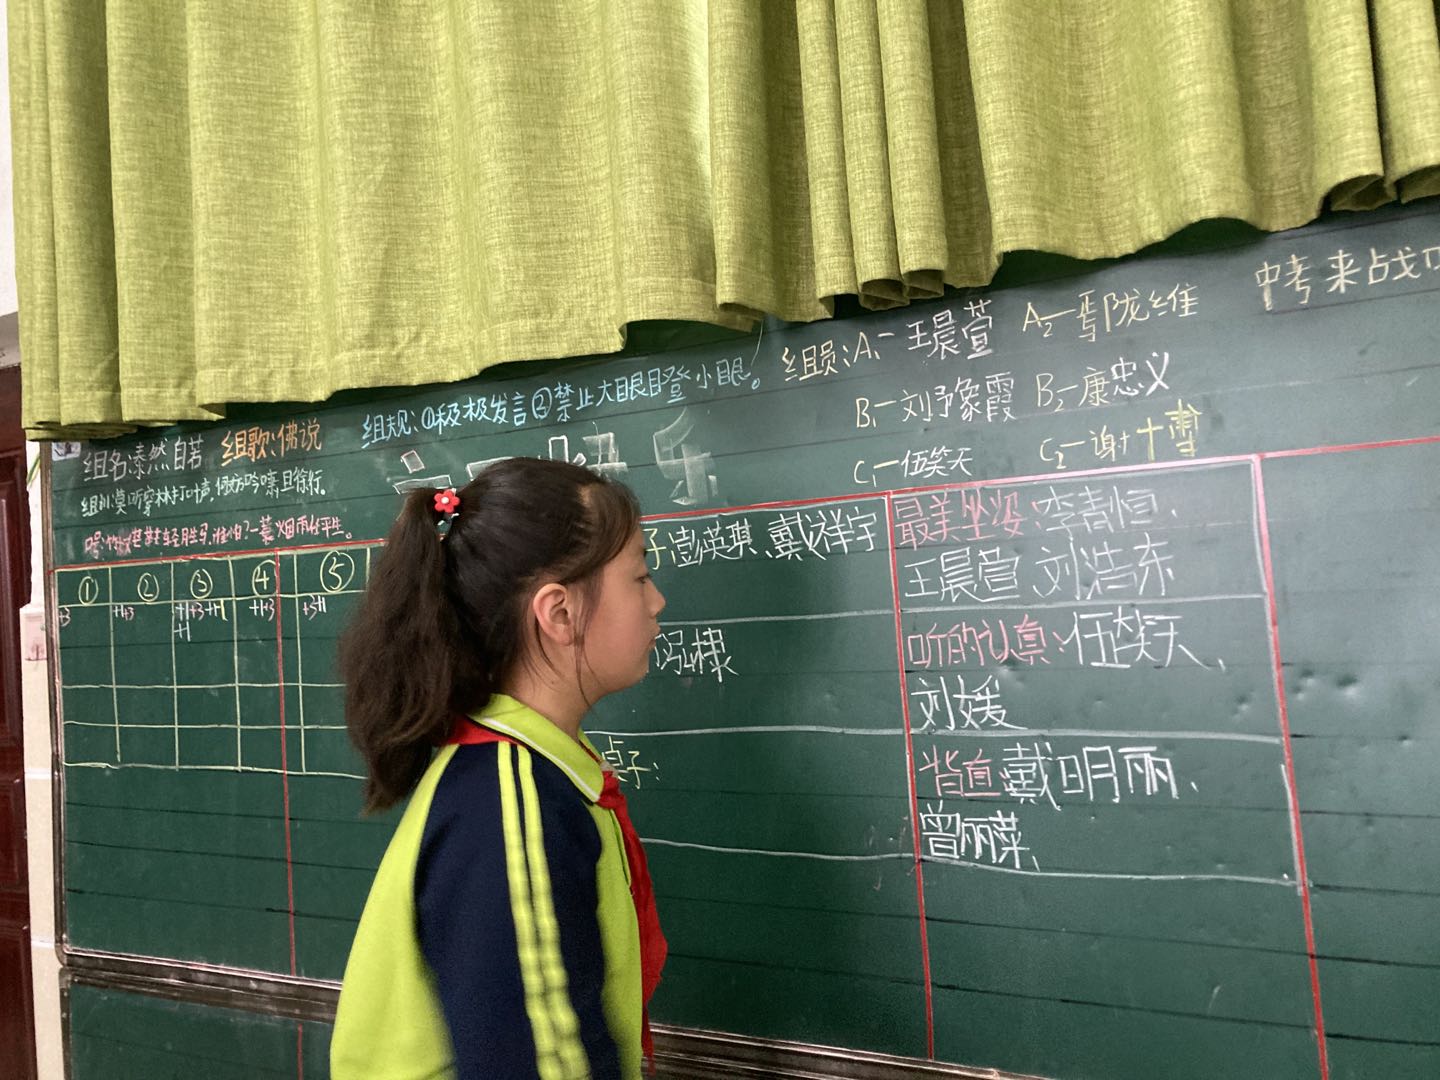 组名:泰然自若 组歌:佛说
组训:莫听穿林打叶声,何妨吟啸且徐行。
竹杖芒鞋轻胜马,谁怕?一蓑烟雨任平生。
组规:①积极发言②禁止大眼瞪小眼。
组员:A1-王晨萱 A2-鄢陇维
B1-刘予象霞 B2-康忠义
C1-伍笑天 C2-谢十雪
中考来战
六一快乐
① ② ③ ④ ⑤
+3 +1+3 +1+3+1 +1+3 +3+1
+1
子:彭英琪、戴祥宇
泓棣
桌子:
最美坐姿:李青恒、
王晨萱、刘浩东
听的认真:伍笑天、
刘媛
背直:戴明丽、
曾丽菲、